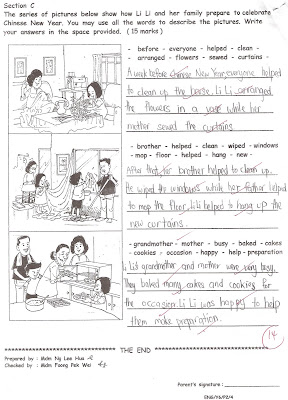 Section C
The series of pictures below show how Li Li and her family prepare to celebrate
Chinese New Year. You may use all the words to describe the pictures. Write
your answers in the space provided. (15 marks)
- before - everyone - helped - clean -
- arranged - flowers - sewed - curtains -
A week before Chinese New Year, everyone helped
to clean up the house. Li Li arranged
the flowers in a vase while her
mother sewed the curtains.
- brother - helped - clean - wiped - windows
- mop - floor - helped - hang - new -
After that, her brother helped to clean up.
He wiped the windows while her father helped
to mop the floor. Lili helped to hang up the
new curtains.
- grandmother - mother - busy - baked - cakes
- cookies - occasion - happy - help - preparation
Li Li's grandmother and mother were very busy.
They baked many cakes and cookies for
the occasion. Li Li was happy to help
them make preparation.
14
THE END
Prepared by : Mdm Ng Lee Hua
Checked by : Mdm Foong Pek Wai
Parent's signature :
ENG/Y6/P2/4